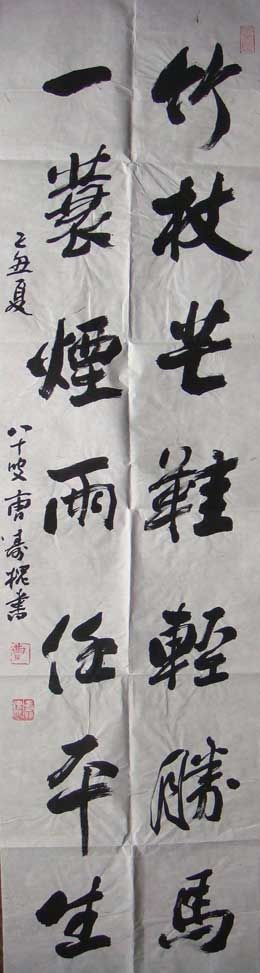 竹杖芒鞋輕勝馬
一蓑煙雨任平生
乙丑夏
八十叟曹壽槐書